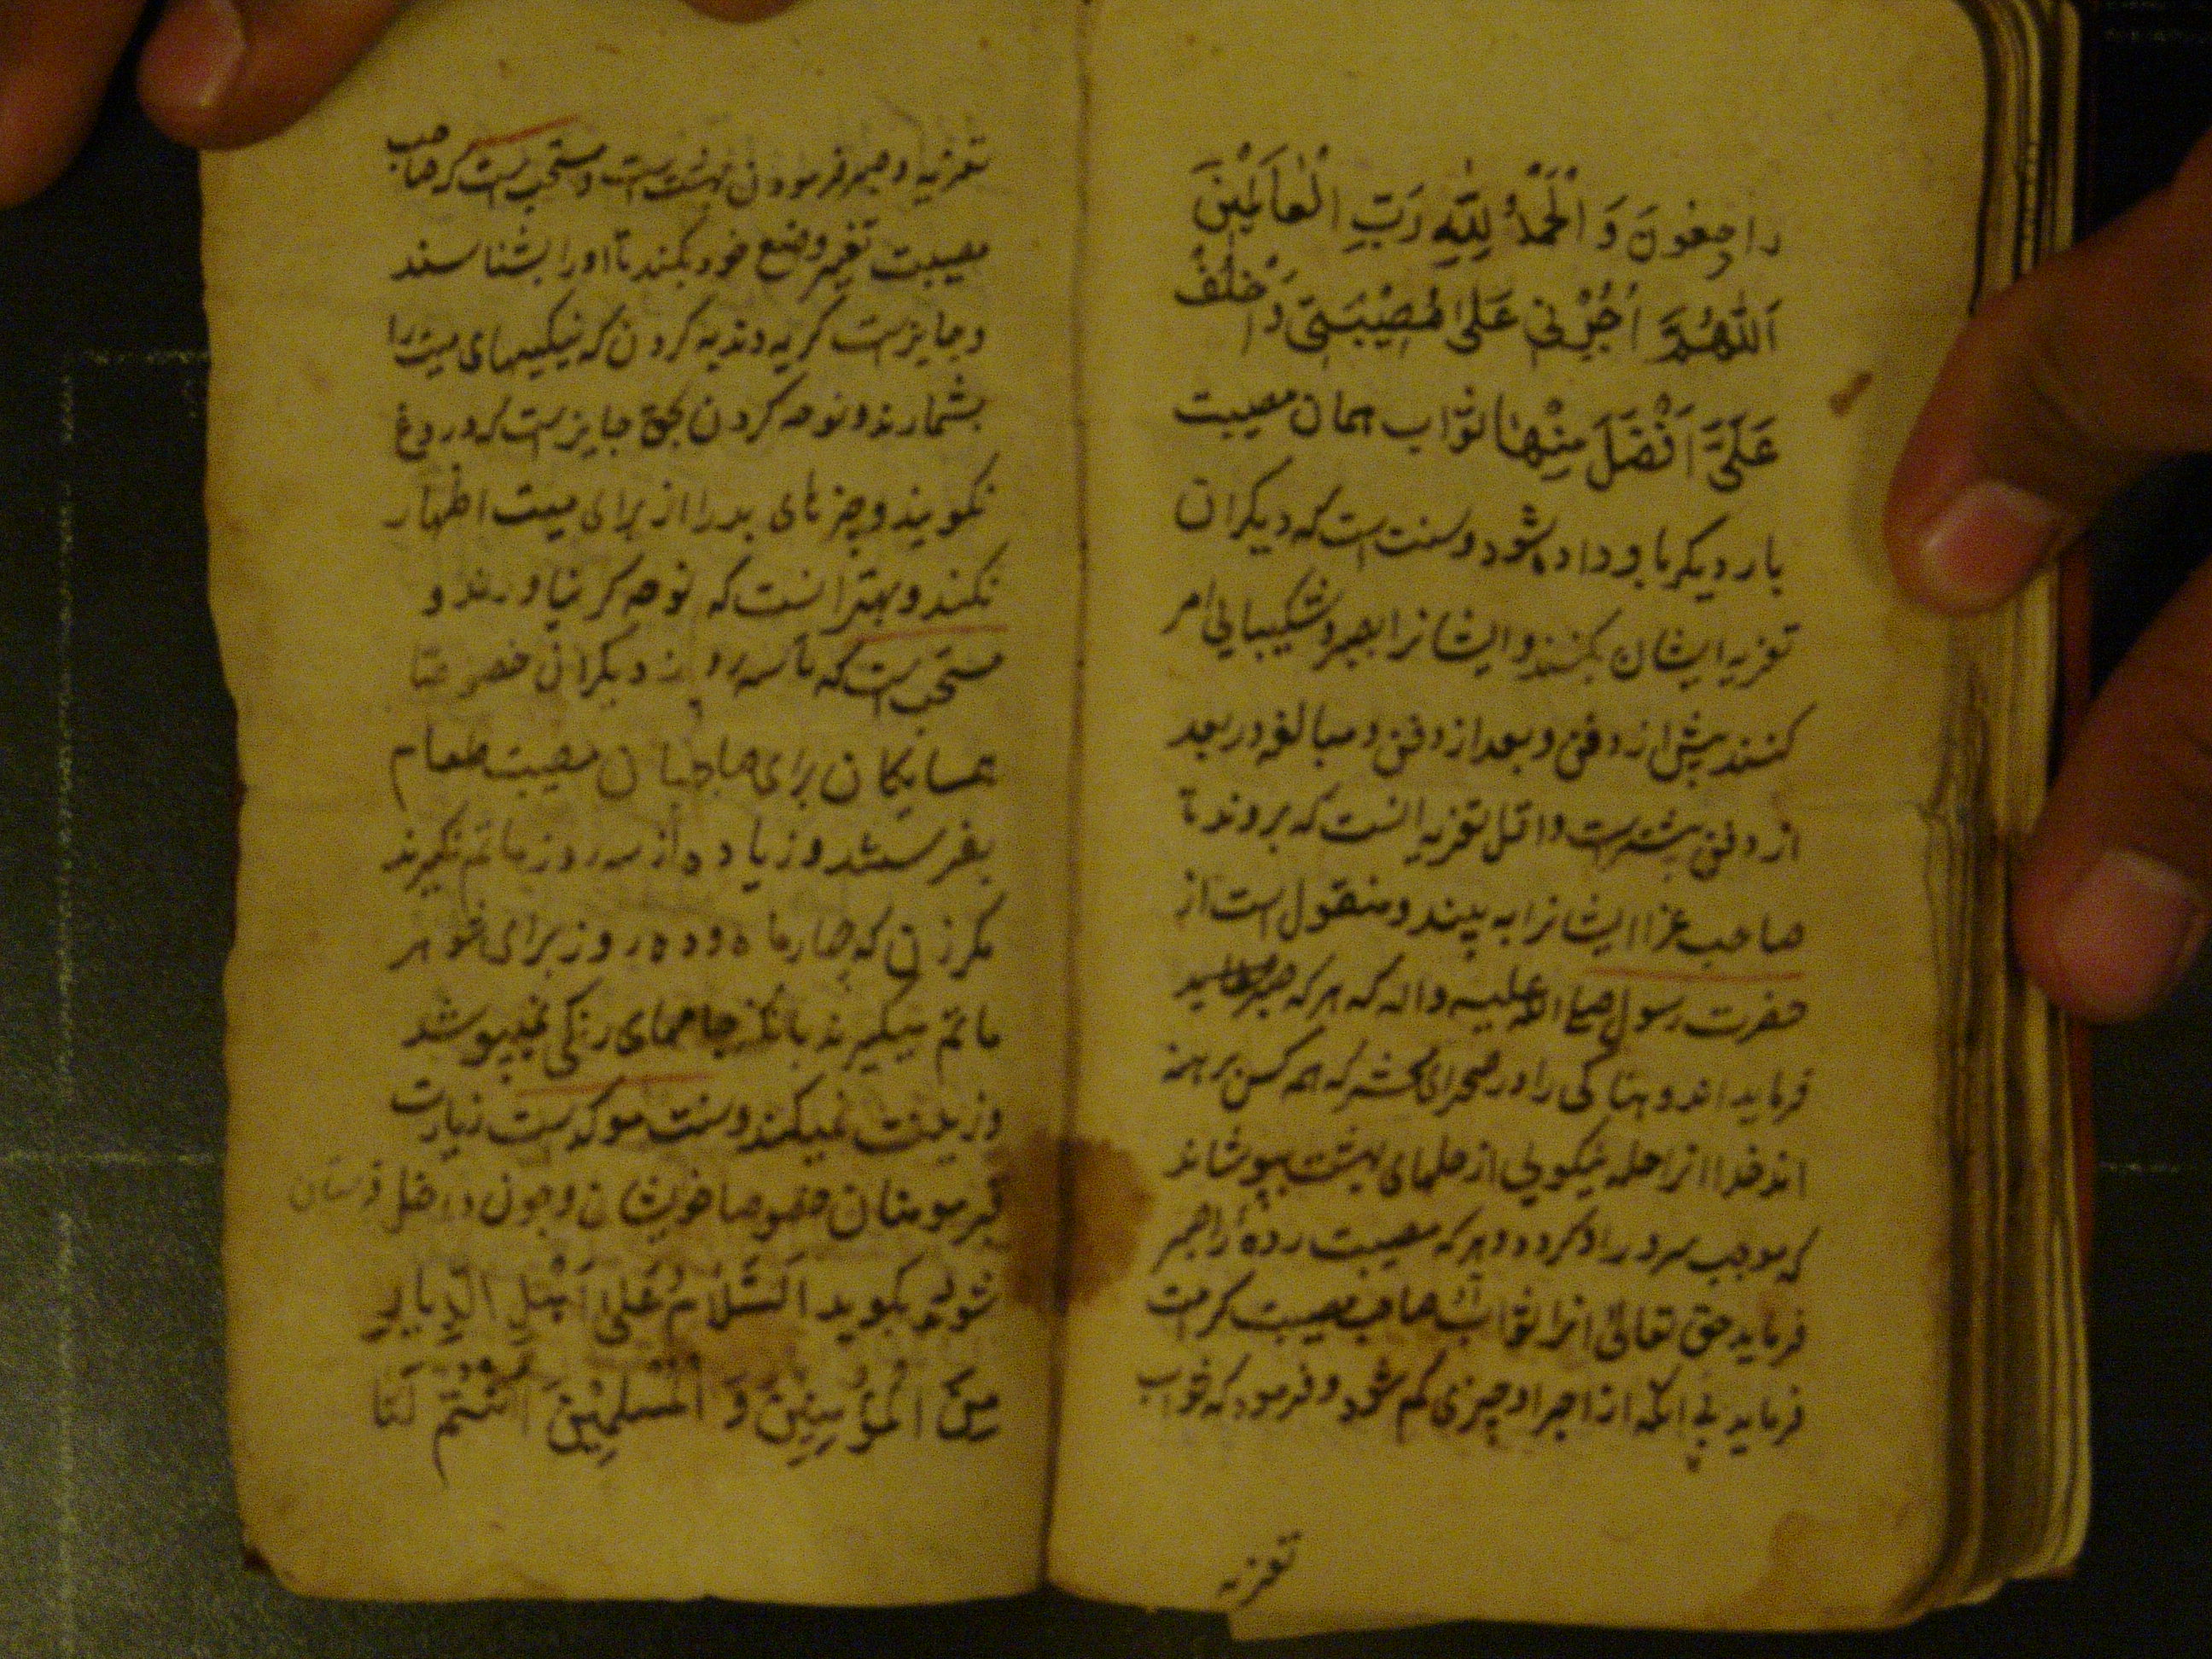 راجِعُونَ وَ الْحَمْدُ لِلّٰهِ رَبِّ الْعالَمِیْنَ
اَللّٰهُمَّ اْجُرْنِی عَلیٰ مُصِیْبَتِی وَاخْلُفْ
عَلَیَّ اَفْضَلَ مِنْهٰا ثواب همان مصیبت
بار دیکر باو داده شود و سنت است که دیکران
تعزیه ایشان بکنند و ایشانرا بصبر و شکیبایی امر
کنند پیش از دفن و بعد از دفن و مبالغه در بعد
از دفن بیشتر است و اقل تعزیه انست که بروند تا
صاحب عزا ایشانرا به بیند و منقول است از
حضرت رسول صلی الله علیه و اله که هر که صبر
فرماید اندوهناکی را در صحرای محشر که همه کس برهنه
اند خدا انرا حله نیکویی از حلهای بهشت بپوشاند
که موجب سرور او کردد و هر که مصیبت زدهٔ را صبر
فرماید حق تعالی انرا ثواب صاحب مصیبت کرامت
فرماید بی انکه از اجر او چیزی کم شود و فرمود که ثواب
تعزیه
تعزیه و صبر فرمودن بهشت است و مستحب است که صاحب
مصیبت تغییر وضع خود بکند تا او را بشناسند
و جایز است کریه و ندبه کردن که نیکیهای میت را
بشمارند و نوحه کردن بحق جایز است که دروغ
نکویند و چیزهای بد را از برای میت اظهار
نکنند و بهتر انست که نوحه کر نیاورند و
مستحب است که تا سه روز دیکران خصوصا
همسایکان برای صاحبان مصیبت طعام
بفرستند و زیاده از سه روز ماتم نکیرند
مکر زن که چهار ماه و ده روز برای شوهر
ماتم میکیرند بانکه جامهای رنکی نمیپوشد
و زینت نمیکند و سنت موکد است زیارت
قبر مومنان خصوصا خویشان و چون داخل قبرستان
شوند بکوید اَلسَّلَامُ عَلیٰ اَهْلِ الدِّیٰارِ
مِنَ الْمُؤْمِنِیْنَ وَ الْمُسْلِمِیْنَ اَنْتُمْ لَنَا